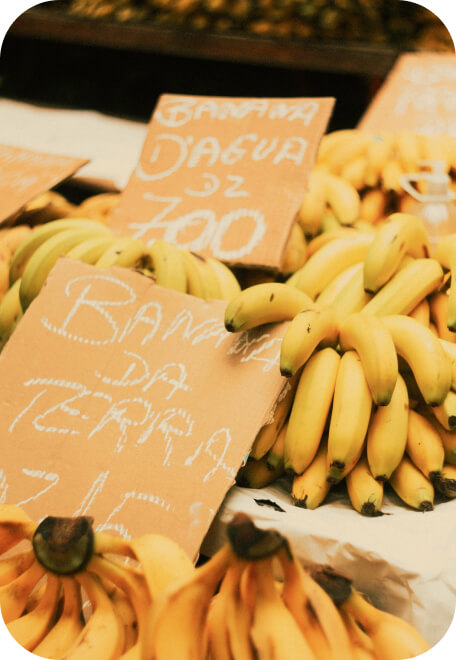 BANANA
D'AGUA
DZ
7,00
BANANA
DA
TERRA